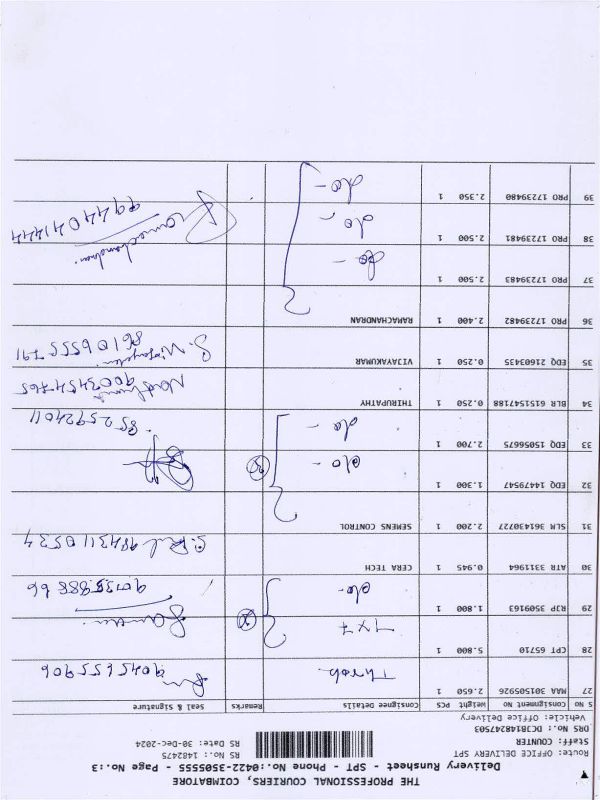 THE PROFESSIONAL COURIERS, COIMBATORE
Delivery Runsheet - SPT - Phone No.:0422-3505555 - Page No.:3
Route: OFFICE DELIVERY SPT
Staff: COUNTER
DRS NO.: DCJB148247503
Vehicle: Office Delivery
RS No.: 1482475
RS Date: 30-Dec-2024
S No Consignment No Weight PCS Consignee Details Remarks Seal & Signature
27 MAA 301505926 2.650 1 9045655906
28 CPT 65710 5.800 1
29 RJP 3509163 1.800 1 do-
30 ATR 3311964 0.945 1 CERA TECH 9843110534
31 SLM 361430727 2.200 1 SEMENS CONTROL
32 EDQ 14479547 1.300 1 do -
33 EDQ 15056675 2.700 1 do - 8525924011
34 BLR 6151547188 0.250 1 THIRUPATHY 9003454765
35 EDQ 21603435 0.250 1 VIJAYAKUMAR 8610655791
36 PRO 17239482 2.400 1 RAMACHANDRAN
37 PRO 17239483 2.500 1 do - Ramachandran
38 PRO 17239481 2.500 1 do - 9944041444
39 PRO 17239480 2.350 1 do -